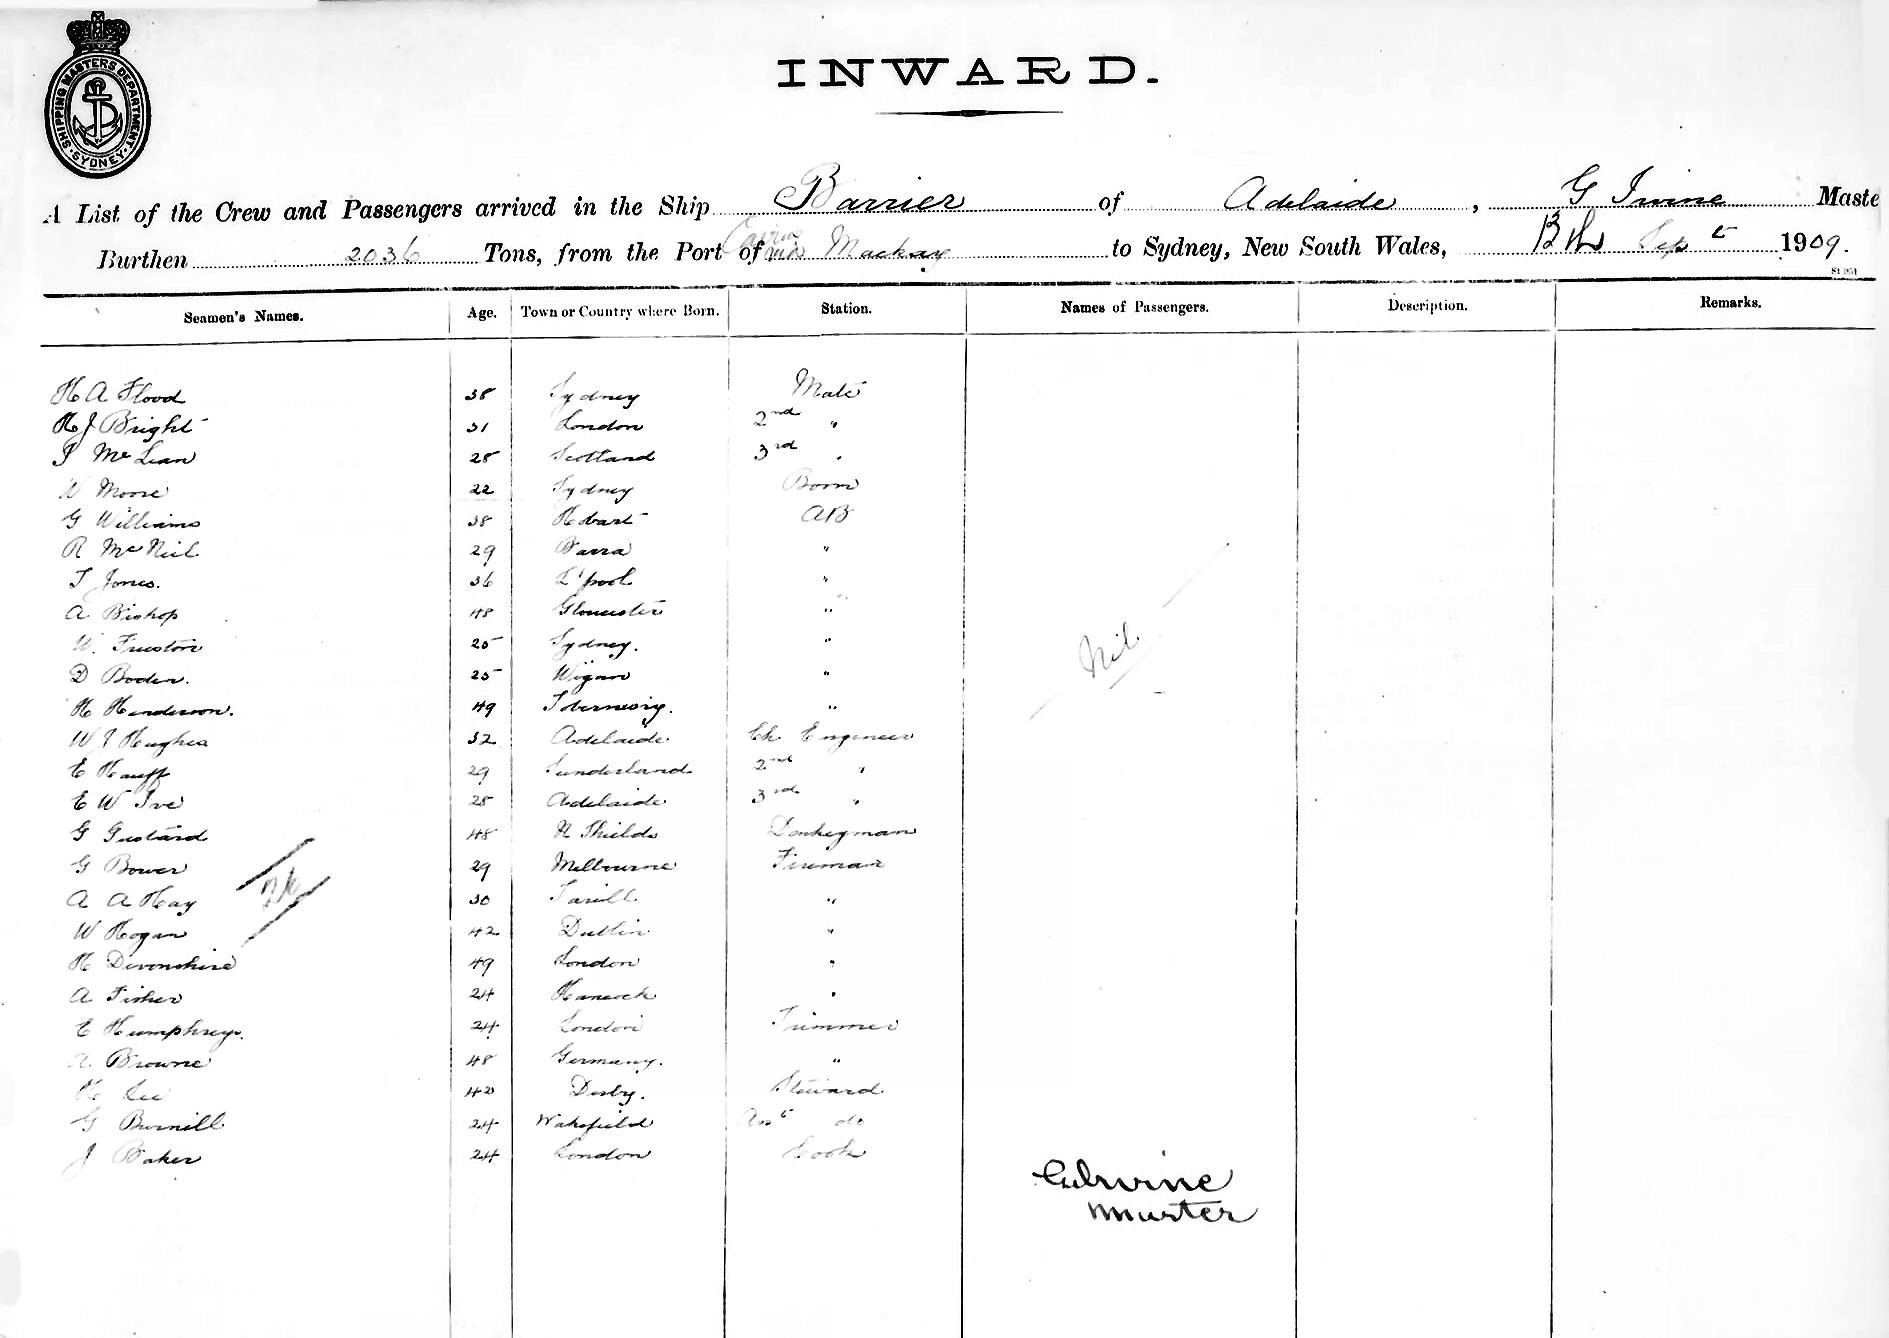 SHIPPING MASTERS DEPARTMENT
SYDNEY
INWARD.
A List of the Crew and Passengers arrived in the Ship Barrier of Adelaide, G Irvine Maste
Burthen 2036 Tons, from the Port of Cairns via Mackay to Sydney, New South Wales, Sep 1909.
Seamen's Names. Age. Town or Country where Born. Station. Names of Passengers. Description. Remarks.
H A Flood 38 Sydney Mate
H J Bright 31 London 2nd "
McLean 28 Scotland 3rd "
W Moore 22 Sydney Bosn
G Williams 38 Hobart AB
R McNeil 29 Barra "
T Jones. 36 L'pool "
A Bishop 48 Gloucester "
W. Freestone 25 Sydney. "
D Boden. 25 Wigan "
Nil
H Henderson. 49 Tobermory. "
W J Hughes 32 Adelaide Ch Engineer
E Hauff 29 Sunderland 2nd "
E W Ive 28 Adelaide 3rd "
G Gustard 48 N Shields Donkeyman
G Bower 29 Melbourne Fireman
A A Hay 30 "
W Hogan 42 Dublin "
H Devonshire 49 London "
A Fisher 24 "
E Humphreys. 24 London Trimmer
A. Browne 48 Germany. "
H Lee 40 Derby. Steward
G Burnill 24 Wakefield Asst do
J Baker 24 London Cook
G Irvine
Master